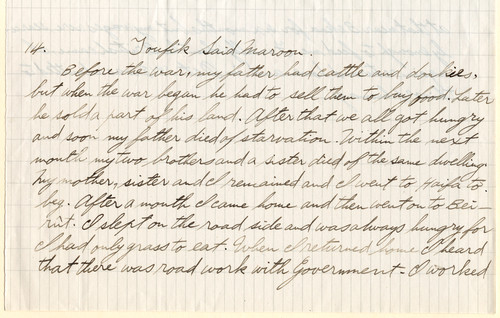 14. Toufik Said Maroon.
Before the war, my father had cattle and donkies,
but when the war began he had to sell them to buy food. Later
he sold a part of his land. After that we all got hungry
and soon my father died of starvation. Within the next
month my two brothers and a sister died of the same dwelling.
My mother, sister and I remained and I went to Haifa to
beg. After a month I came home and then went on to Bei-
rut. I slept on the road side and was always hungry for
I had only grass to eat. When I returned home I heard
that there was road work with Government - I worked